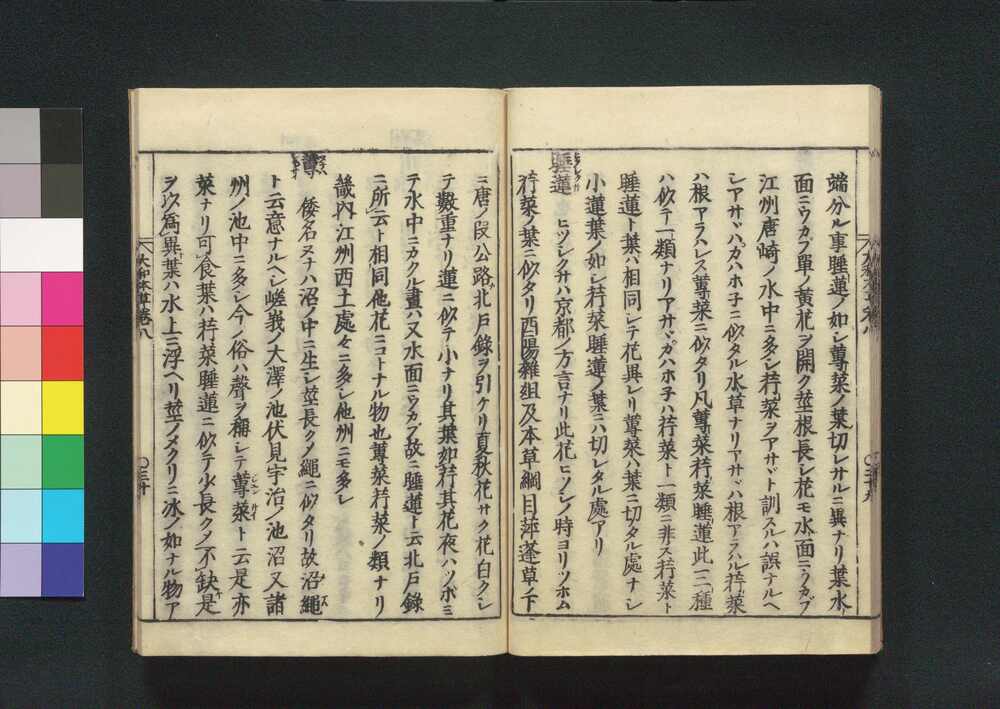 端分ル事睡蓮ノ如シ蓴菜ノ葉切レサルニ異ナリ葉水
面ニウカブ單ノ黄花ヲ開ク莖根長シ花モ水面ニウカブ
江州唐﨑ノ水中ニ多シ荇菜ヲアサヾト訓スルハ誤ナルヘ
シアサヾハカハホ子ニ似タル水草ナリアサヾハ根アラハル荇菜
ハ根アラハレス蓴菜ニ似タリ凡蓴菜荇菜睡蓮此三種
ハ似テ一類ナリアサヾカハホ子ハ荇菜ト一類ニ非ス荇菜ト
睡蓮ト葉ハ相同レテ花異レリ蓴菜ハ葉ニ切タル處ナシ
小蓮葉ノ如シ荇菜睡蓮ノ葉ニハ切レタル處アリ
睡蓮 ヒツシクサハ京都ノ方言ナリ此花ヒツシノ時ヨリツホム
荇菜ノ葉ニ似タリ酉陽雜俎及本草綱目萍蓬草ノ下
ニ唐ノ段公路北戸錄ヲ引ケリ夏秋花サク花白クシ
テ數重ナリ蓮ニ似テ小ナリ其葉如荇其花夜ハツボミ
テ水中ニカクル晝ハ又水面ニウカブ故ニ睡蓮ト云北戸錄
ニ所云ト相同他花ニコトナル物也蓴菜荇菜ノ類ナリ
畿内江州西土處々ニ多シ他州ニモ多シ
蓴 倭名ヌナハ沼ノ中ニ生シ莖長クメ繩ニ似タリ故沼繩
ト云意ナルヘシ嵯峩ノ大澤ノ池伏見宇治ノ池沼又諸
州ノ池中ニ多シ今ノ俗ハ聲ヲ稱シテ蓴菜ト云是亦
菜ナリ可食葉ハ荇菜睡蓮ニ似テ少長クメ不缺是
ヲ以爲異葉ハ水上ニ浮ヘリ莖ノメクリニ氷ノ如ナル物ア
大和本草卷八
〇三十